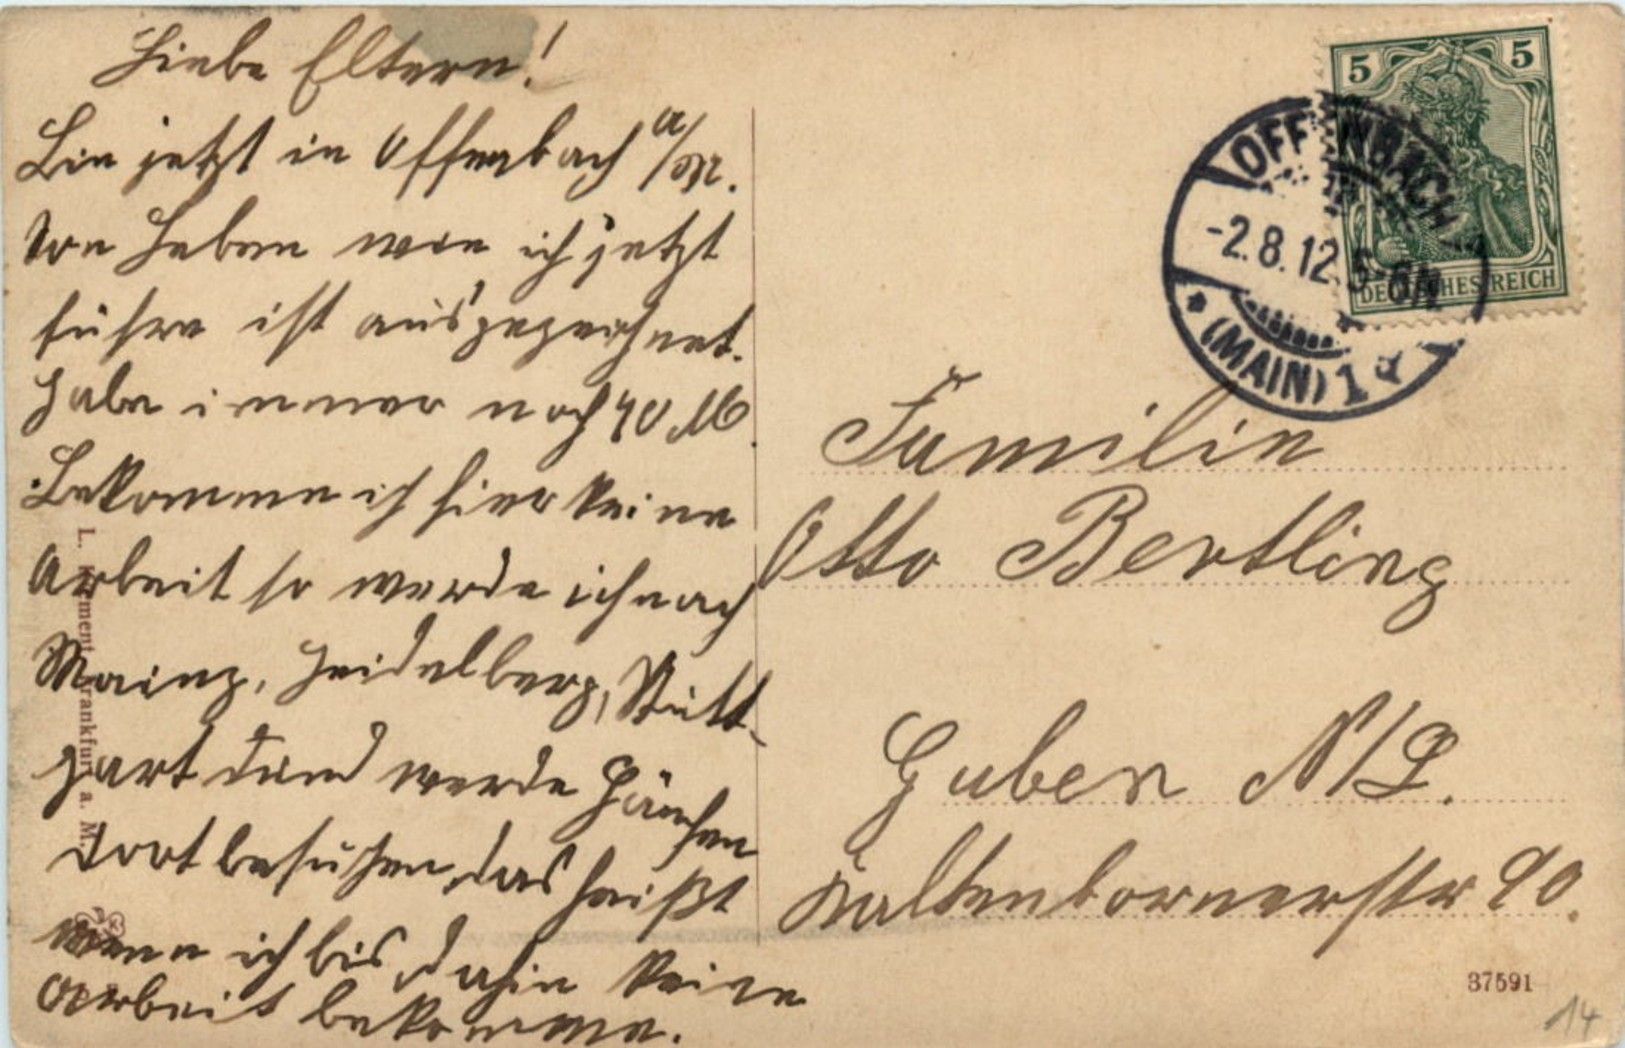 Liebe Eltern!
Bin jetzt in Offenbach a/M.
Von Leben wie ich jetzt
führe ist ausgezeichnet.
Habe immer noch 40 M.
Bekomme ich hier keine
Arbeit so werde ich nach
Mainz, Heidelberg, Stutt-
gart und werde
dort besuchen, das heißt
wenn ich bis dahin keine
Arbeit bekomme.
L. Klement, Frankfurt a. M.
5 5
DEUTSCHES REICH
OFFENBACH
-2.8.12. 5-6N
* (MAIN) 1
Familie
Otto Bertling
Guben N/L.
Kaltenbornerstr 90.
37591
14